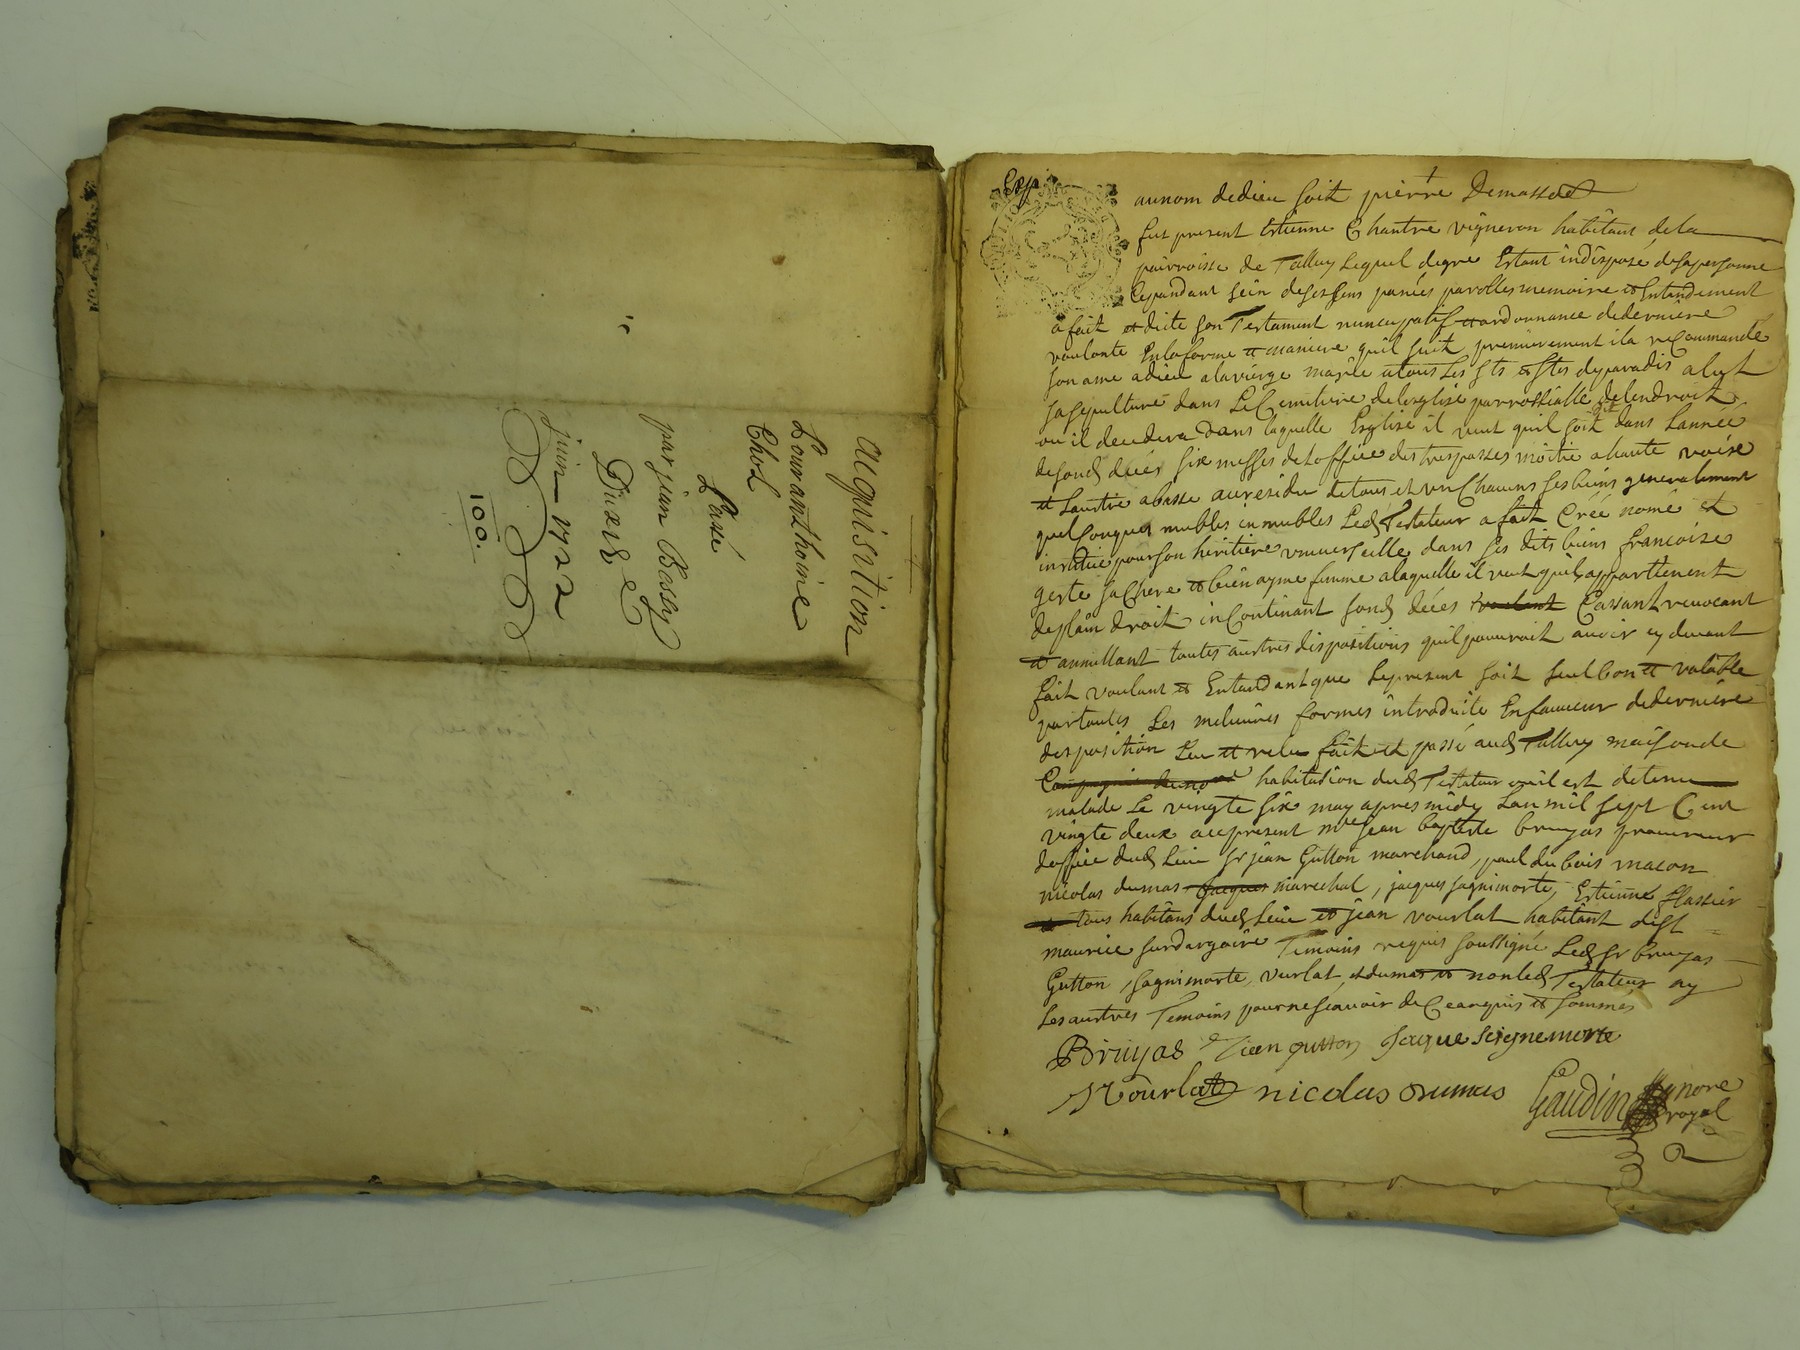 acquisition
pour anthoine
Chol
Passé
par jean Basly
juin 1722
100.
Exp
au nom de dieu soit pierre
fut present Estienne Chantre vigneron habitant de la
parroisse de Talluy Lequel de gre Estant indisposé de sa personne
Cependant sein de ses sens pensées parolles memoire et Entendement
a fait et dicte son Testament nuncupatif et ordonnance de derniere
voulonte En la forme et maniere qu'il suit premierement il a recommandé
son ame a dieu a la vierge marie a tous Les sts et stes du paradis a lut
sa sepulture dans Le Cemitiere de lesglise parrossialle de lendroit
ou il decedera dans laquelle Esglise il veut quil soit dit dans Lannée
de son d deces six messes de Loffice des trespasses moitie a haute voixe
et Lautre a basse au residu de tous et un Chacuns ses biens generalement
quelsonques mubles inmubles Led Testateur a fait Créé nomé et
institué pour son heritiere universelle dans ses dits biens francoise
geste sa Chere et bien ayme femme a laquelle il veut quils appartienent
de plain droit in Continant son d deces voulant Cassant revocant
et annullant toutes austres dispositions quil pouvroit avoir cy devant
fait voulant et Entandant que Le present soit seul bon et valable
par toutes Les melieures formes introduite En faveur de derniere
disposition Leu et relu fait et passé aud Talluy maison de
habitation dud Testateur ou il est detenu
malade Le vingte six may apres midy Lan mil sept Cent
vingte deux avec present me jean baptiste bruyas procureur
doffice dud Lieu sr jean Gutton marchand, paul du bois macon
nicolas dumas Jacques marechal, jacques sagnimorte, Estienne flassier
et tous habitans dud Lieu et jean vourlat habitant de st
maurice sur dargoire Temoins requis soussigné Led sr bruyas
Gutton, sagnimorte, vurlat, et dumas et non led Testateur ny
Les austres Temoins pour ne scavoir de Ce enquis et sommés
Bruyas Jean gutton Jaque seignemorte
Vourlat nicolas Dumas Gaudin nore
royal